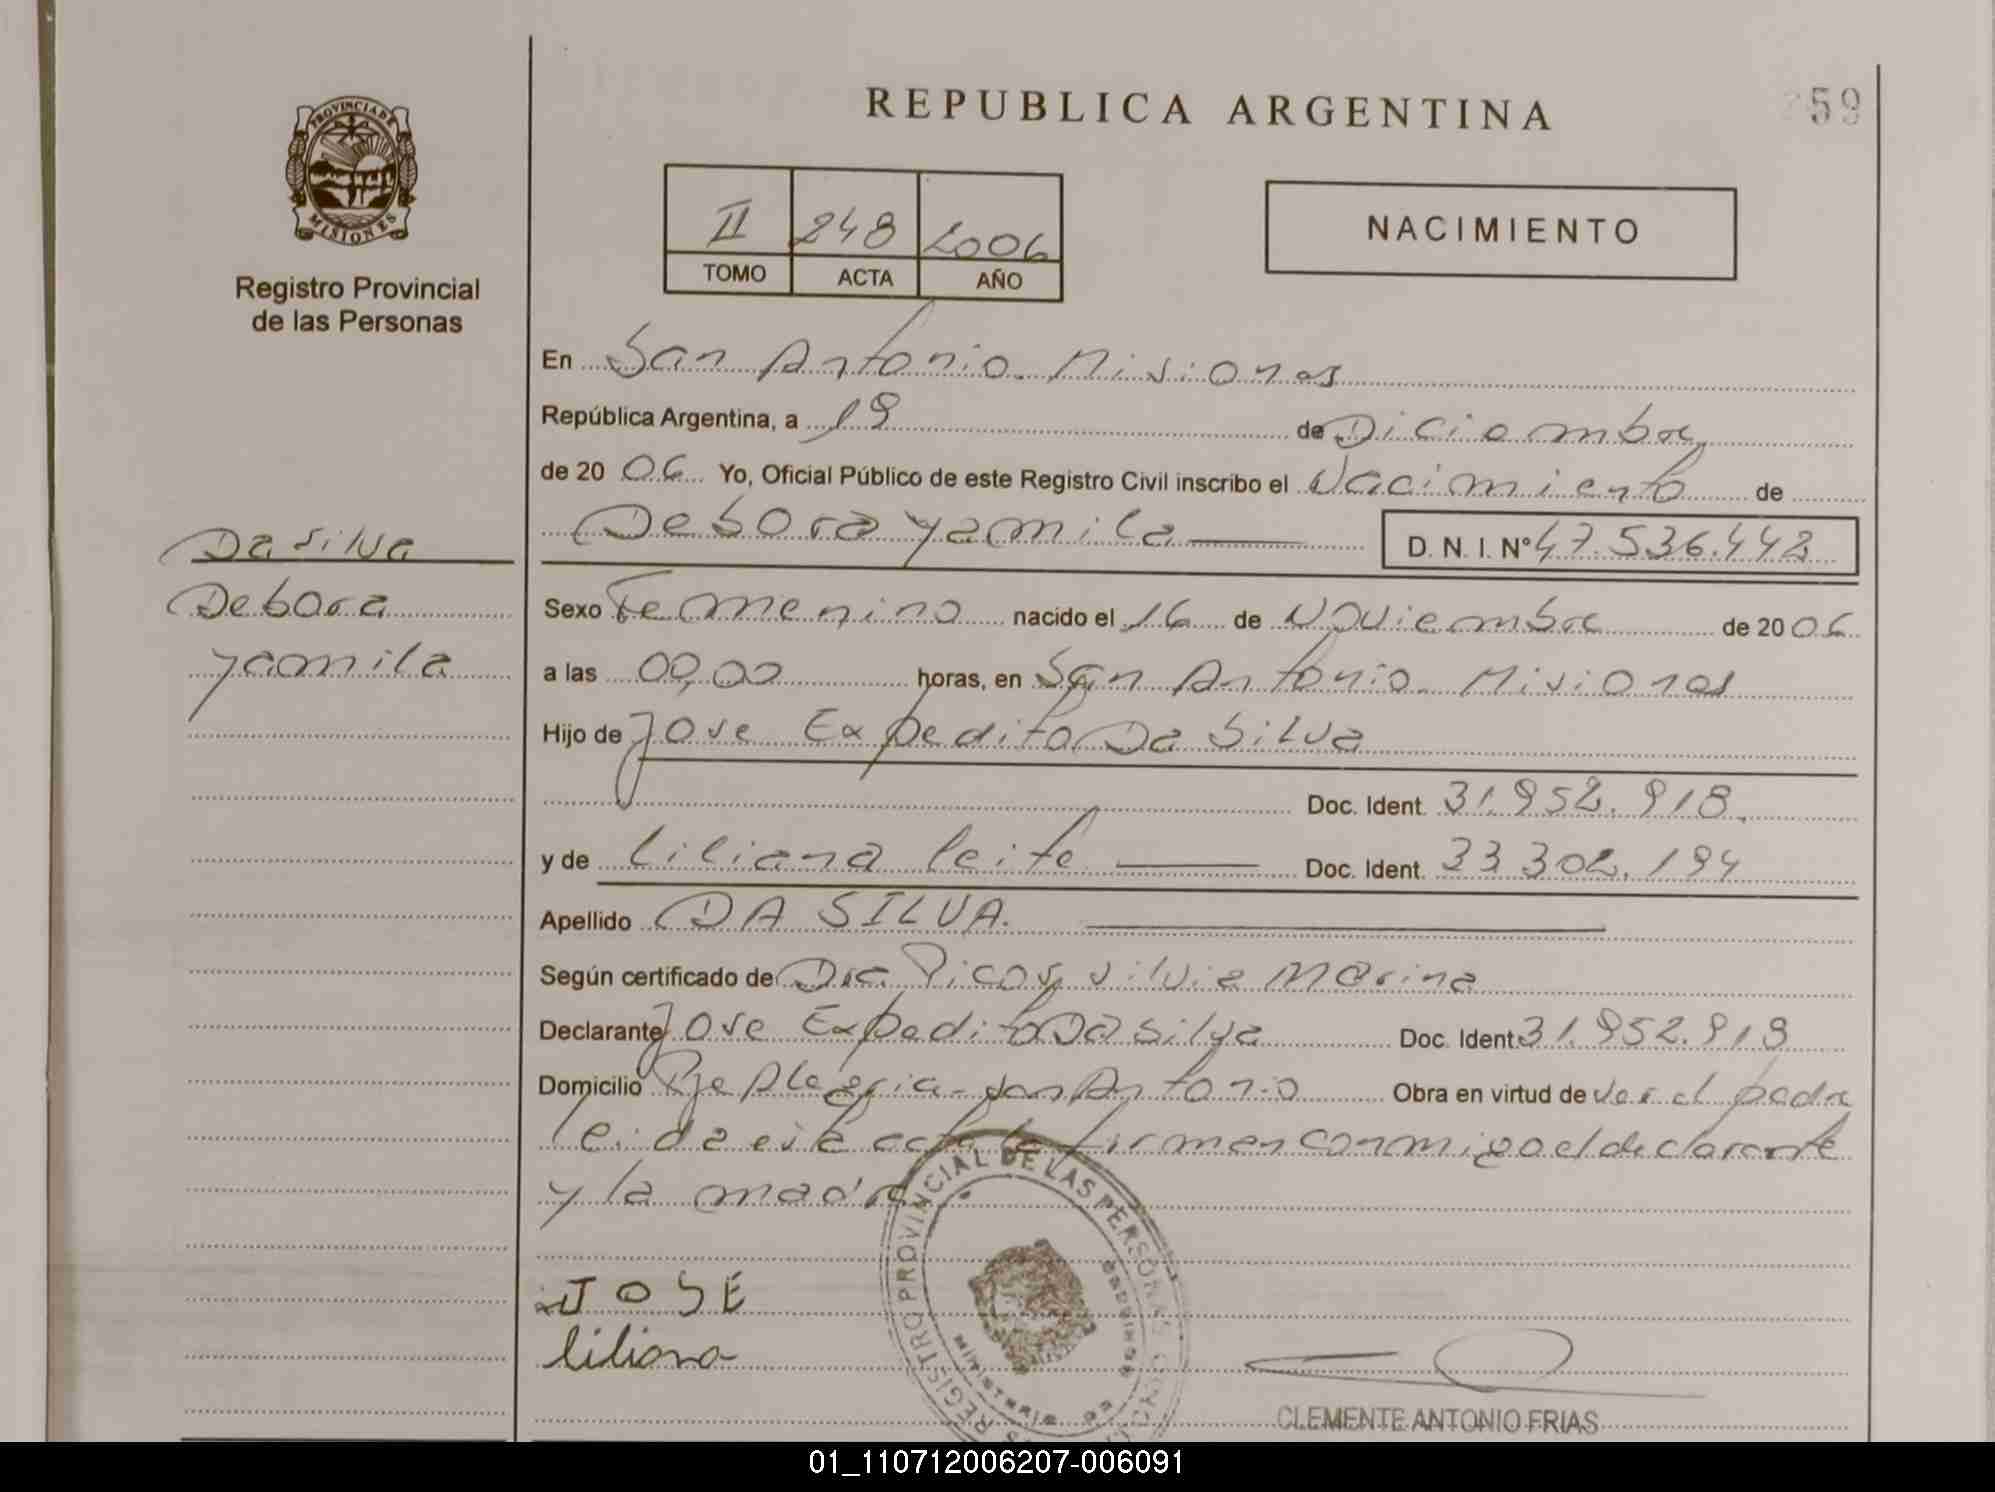 REPUBLICA ARGENTINA
59
PROVINCIA DE
MISIONES
Registro Provincial
de las Personas
II 248 2006
TOMO ACTA AÑO
NACIMIENTO
En San Antonio. Misiones
República Argentina, a 19 de Diciembre
de 20 06 Yo, Oficial Público de este Registro Civil inscribo el Nacimiento de
Debora yamila D. N. I. Nº 47.536.442
Da Silva
Debora
yamila
Sexo Femenino nacido el 16 de Noviembre de 20 06
a las 00,00 horas, en San Antonio. Misiones
Hijo de Jose Expedito Da Silva
Doc. Ident. 31.952.918.
y de Liliana Leite Doc. Ident. 33.302.194
Apellido DA SILVA.
Según certificado de Dra. Picos, Silvia Marina
Declarante Jose Expedito Da Silva Doc. Ident. 31.952.918
Domicilio Pje Alegria - San Antonio Obra en virtud de ser el padre
leida este acta la firman conmigo el declarante
y la madre
JOSE
liliana
REGISTRO PROVINCIAL DE LAS PERSONAS
MINISTERIO DE GOBIERNO
CLEMENTE ANTONIO FRIAS
01_110712006207-006091